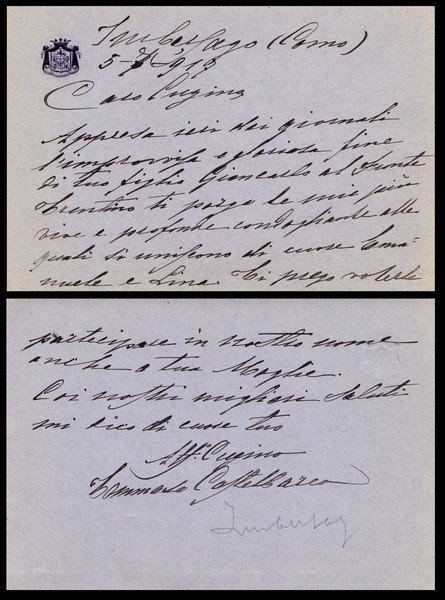 Imbersago (Como)
Caro Cugino,
Appresa ieri dai giornali
l'improvvisa e gloriosa fine
di tuo figlio Giancarlo al fronte
Trentino ti porgo le mie più
vive e profonde condoglianze alle
quali si uniscono di cuore Ema
nuele e Lina. Ti prego volerle
partecipare in nostro nome
anche a tua Moglie.
Coi nostri migliori saluti
mi dico di cuore tuo
Aff. Cugino
Tommaso Castelbarco